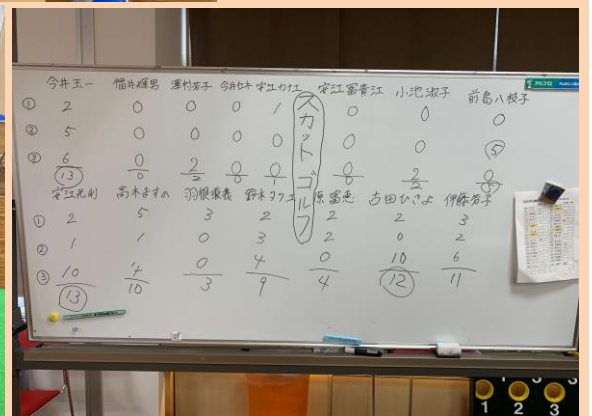 今井玉一 福井輝男 澤村芳子 今井セキ 安江カナ江 安江富貴江 小池淑子 前島八枝子
① 2 0 0 0 1 0 0 0
② 5 0 0 0 0 0 0 5
③ 6 0 2 0 0 0 2 0
13 0 2 0 1 0 2 5
スカットゴルフ
安江光利 高木ますの 羽根乗義 鈴木タケエ 原冨恵 古田ひさよ 伊藤芳子
① 2 5 3 2 2 2 3
② 1 1 0 3 2 0 2
③ 10 4 0 4 0 10 6
13 10 3 9 4 12 11
1 2 3